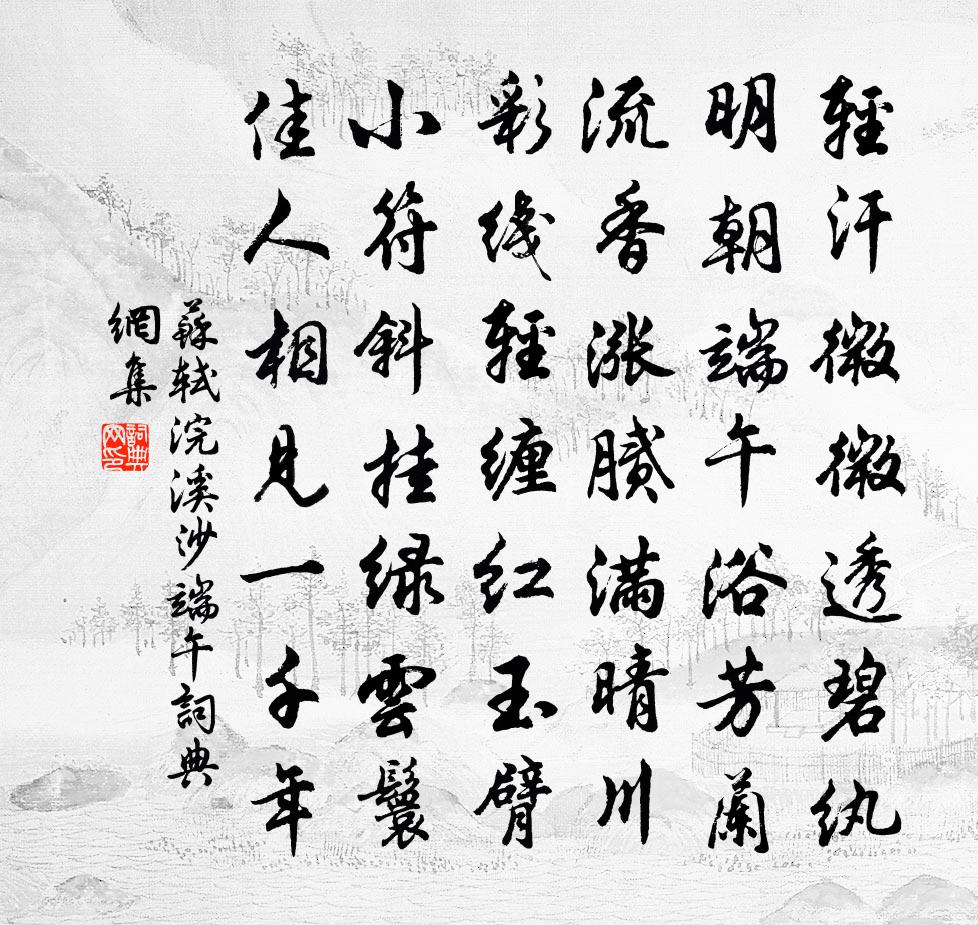 輕汗微微透碧紈
明朝端午浴芳蘭
流香漲膩滿晴川
彩线輕缠红玉臂
小符斜挂绿雲鬟
佳人相見一千年
蘇軾浣溪沙端午詞典
網集
詞典
网印